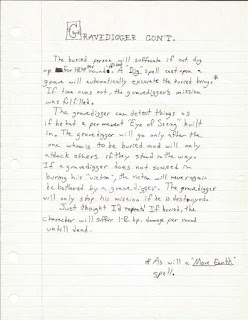 GRAVEDIGGER CONT.
The buried person will suffocate if not dig
up for 1d4 rounds. A Dig spell cast upon a
grave will automatically excavate the buried being.*
If time runs out, the gravedigger's mission
was fulfilled.
The gravedigger can detect things as
if he had a permanent "Eye of Seeing" built
in. The gravedigger will go only after the
one whom is to be buried and will only
attack others if they stand in the way.
If a gravedigger does not succeed in
burying his "victim", the victim will never again
be bothered by a gravedigger. The gravedigger
will only stop his mission if he is destroyed.
Just thought I'd repeat! If buried, the
character will suffer 1-12 h.p. damage per round
untill dead.
* As will a "Move Earth"
spell.